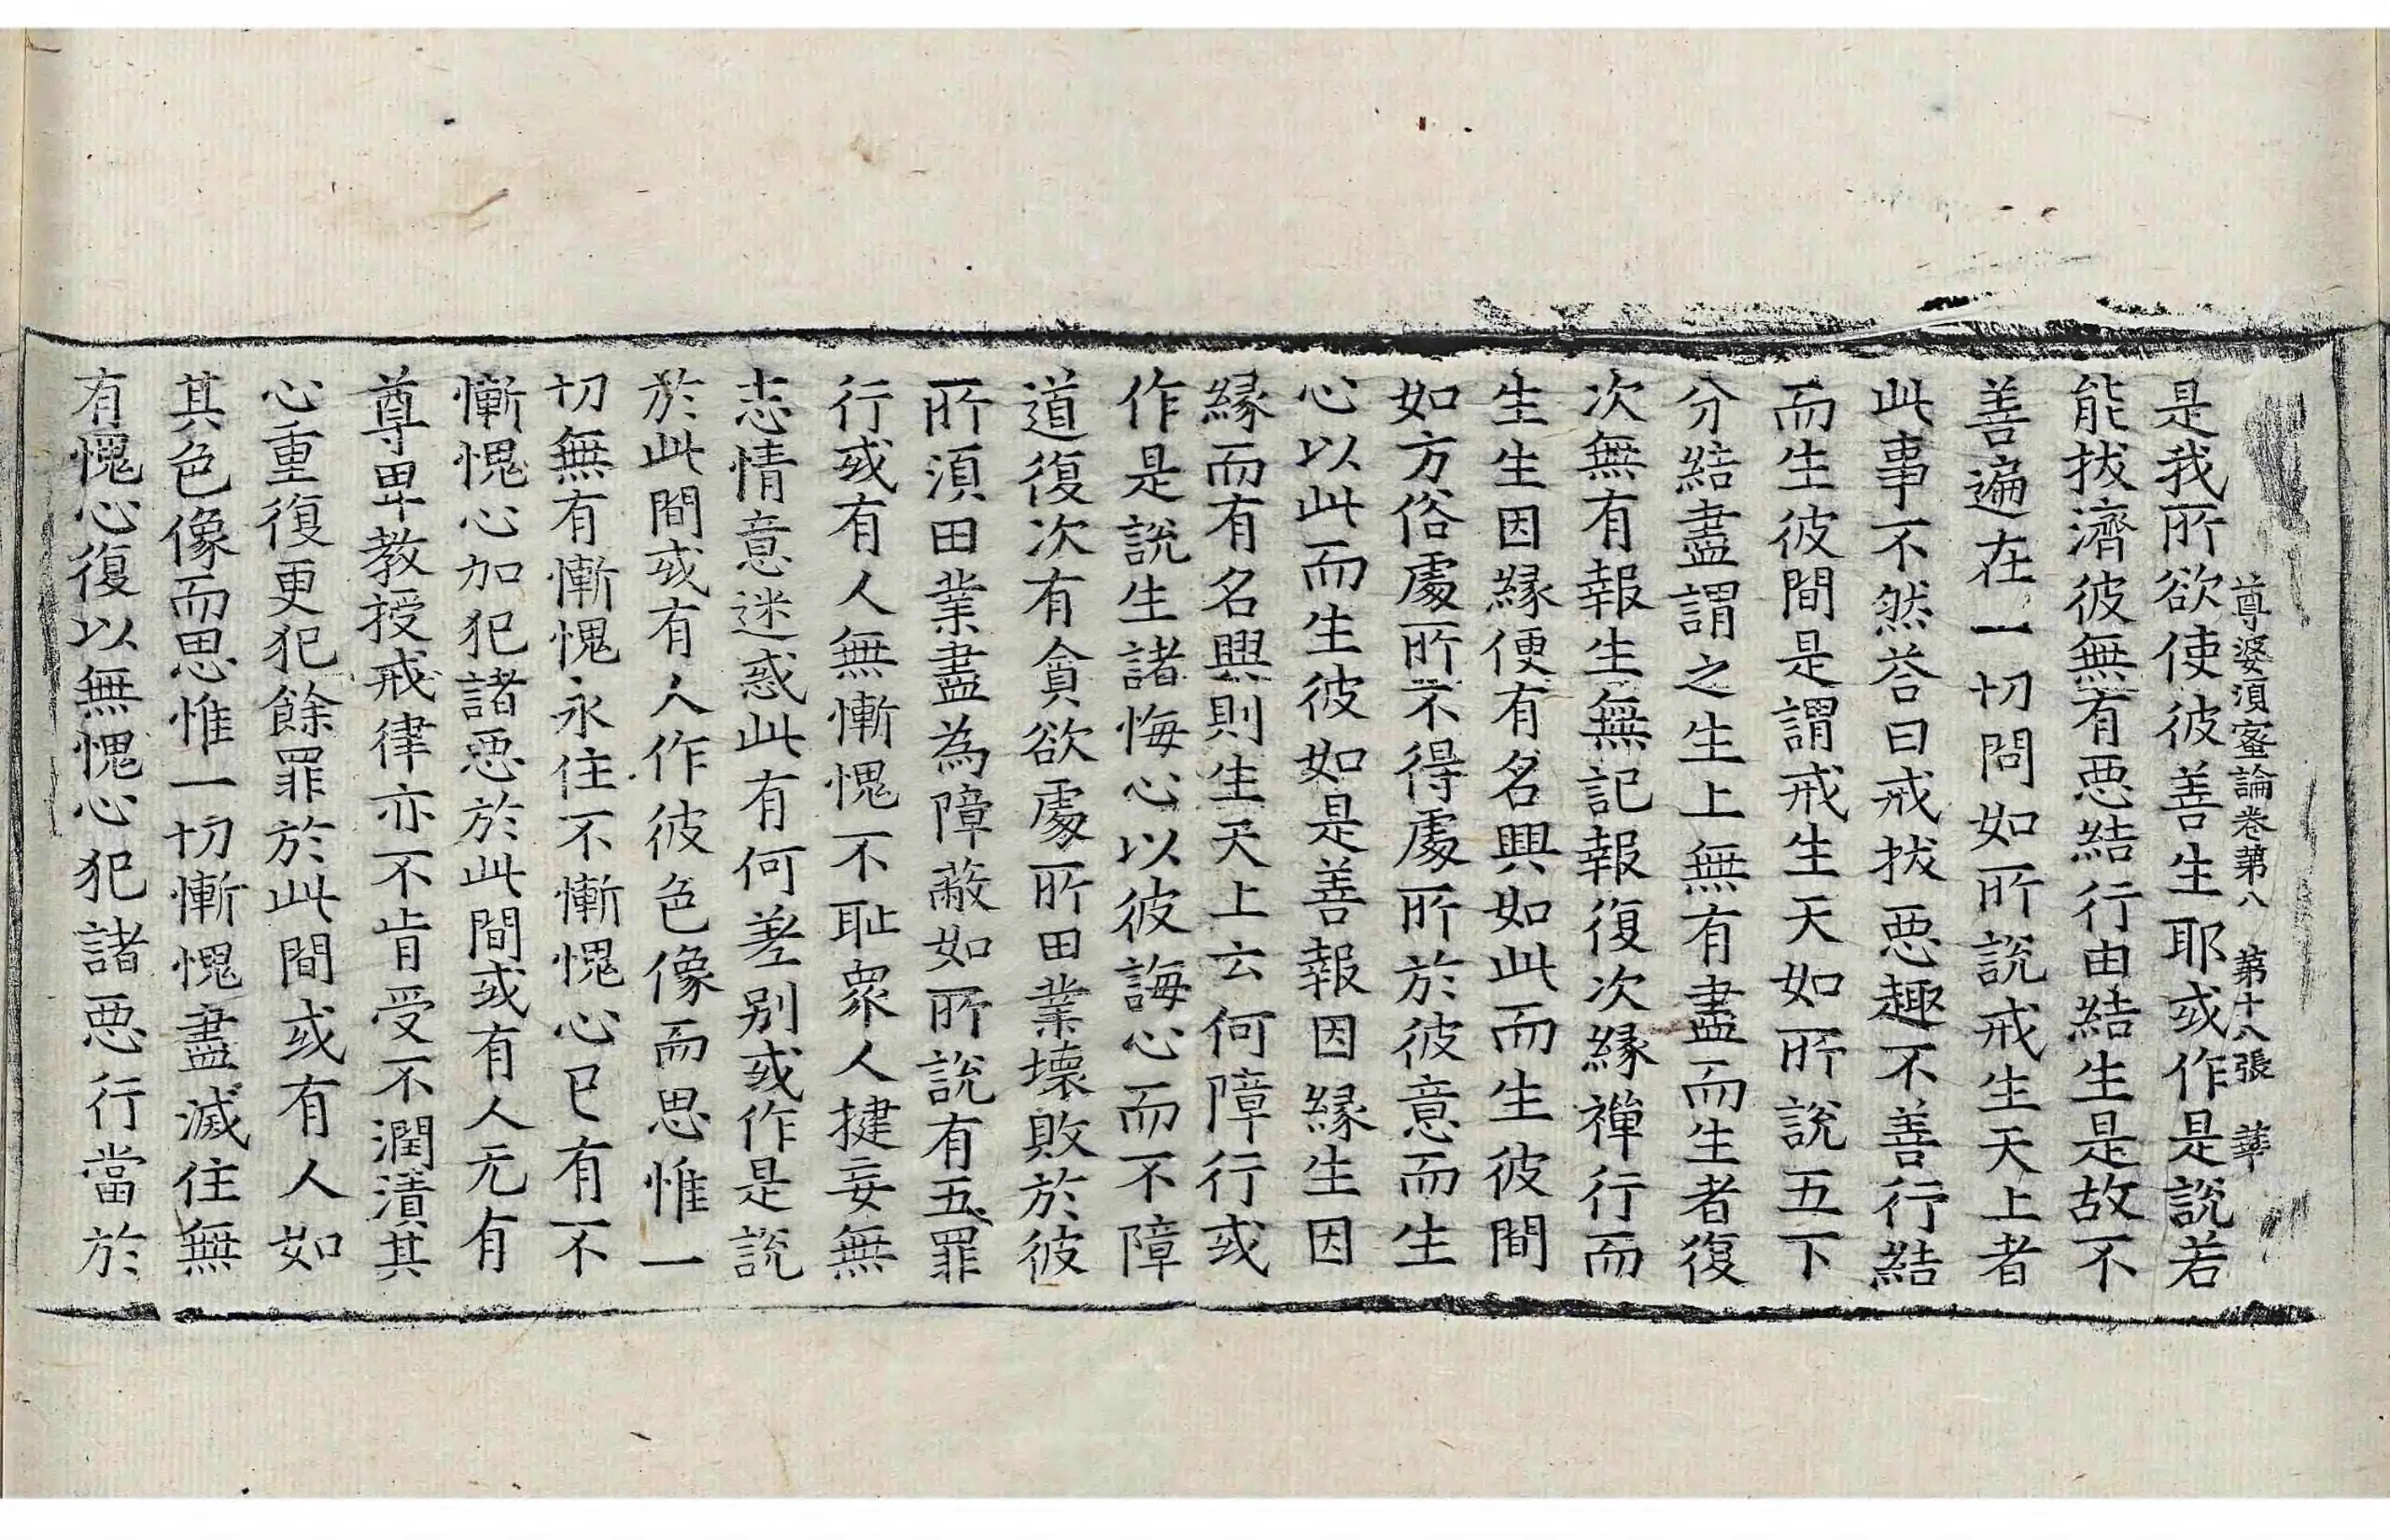 尊婆湏蜜論卷第八　第十八張　華
是我所欲使彼善生耶或作是說若
能拔濟彼無有惡結行由結生是故不
善遍在一切問如所說戒生天上者
此事不然荅曰戒拔惡趣不善行結
而生彼間是謂戒生天如所說五下
分結盡謂之生上無有盡而生者復
次無有報生無記報復次緣禪行而
生生因緣便有名興如此而生彼間
如方俗處所不得處所於彼意而生
心以此而生彼如是善報因緣生因
緣而有名興則生天上云何障行或
作是說生諸悔心以彼誨心而不障
道復次有貪欲處所田業壞敗於彼
所湏田業盡為障蔽如所說有五罪
行或有人無慚愧不耻衆人揵妄無
志情意迷惑此有何差别或作是說
於此間或有人作彼色像而思惟一
切無有慚愧永住不慚愧心已有不
慚愧心加犯諸惡於此間或有人无有
尊卑教授戒律亦不肯受不潤漬其
心重復更犯餘罪於此間或有人如
其色像而思惟一切慚愧盡滅住無
有愧心復以無愧心犯諸惡行當於